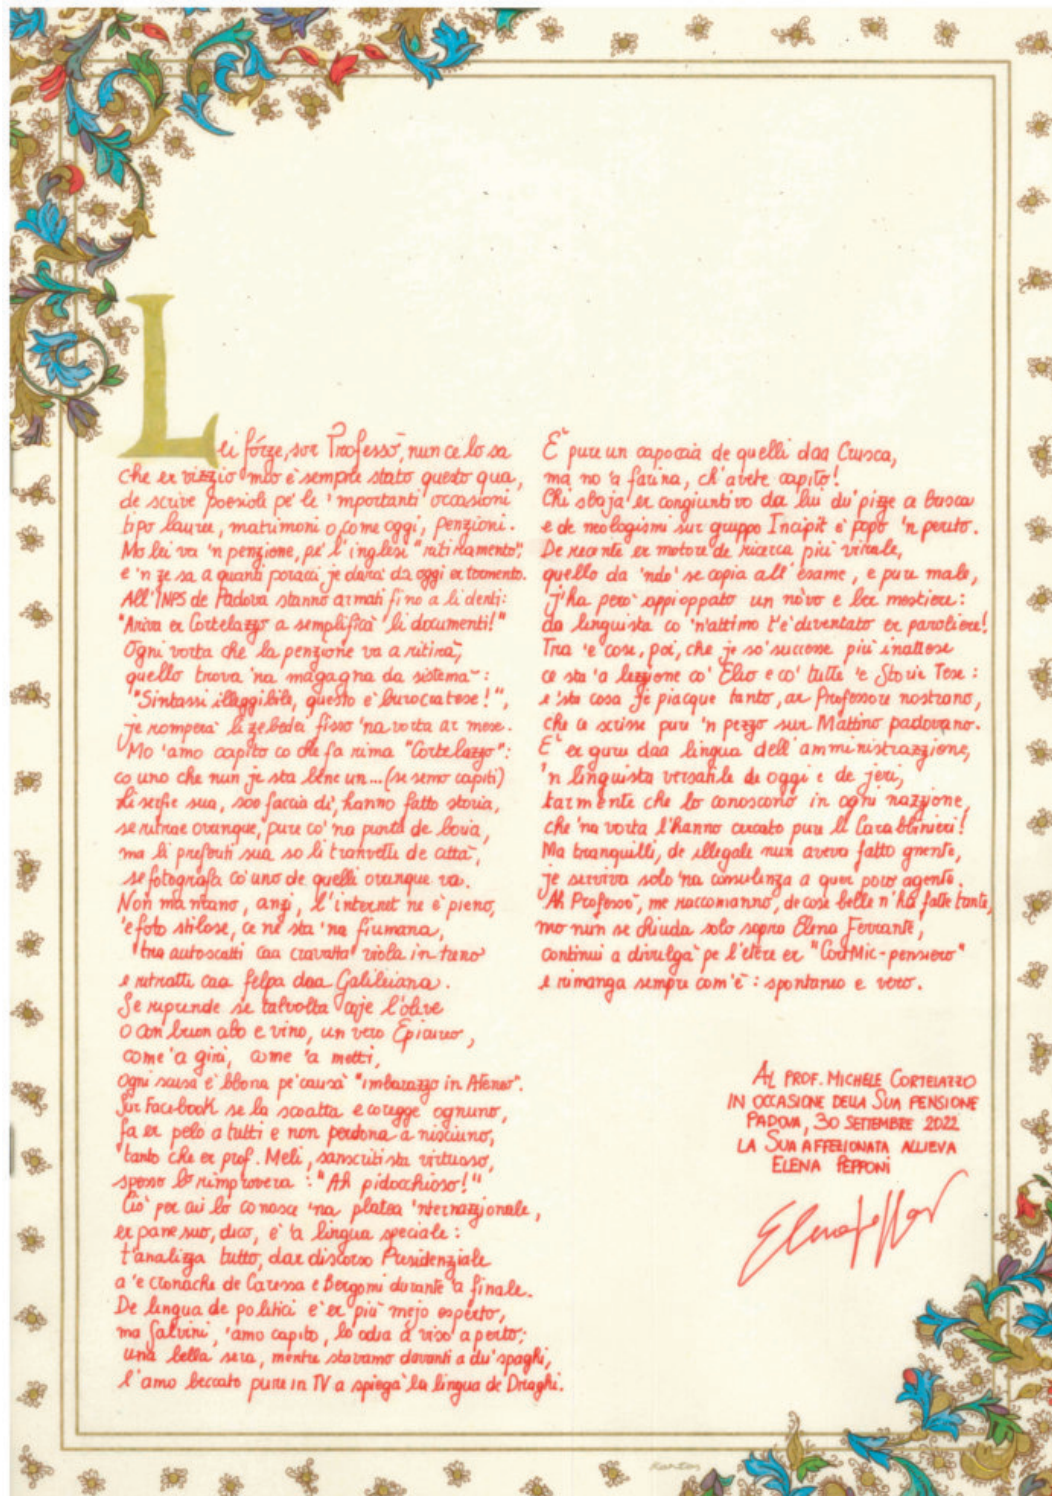 Lei forze, sor Professò, nun ce lo sa
che er vizzio mio è sempre stato questo qua,
de scrive poesiole pe' le 'mportanti occasioni
tipo lauree, matrimoni o, come oggi, penzioni.
Mo lei va 'n penzione, pe' l'inglesi "ritiramento",
e 'n ze sa a quanti poracci je darà da oggi er tormento.
All'INPS de Padova stanno armati fino a li denti:
"Ariva er Cortelazzo a semplificà li documenti!"
Ogni vorta che la penzione va a ritirà,
quello trova 'na magagna da sistemà:
"Sintassi illeggibile, questo è burocratese!",
je romperà li zebedei fisso 'na vorta ar mese.
Mo 'amo capito co che fa rima "Cortelazzo":
co uno che nun je sta bene un... (se semo capiti)
Li serfie sua, soo faccia dì, hanno fatto storia,
se ritrae ovunque, pure co' 'na punta de boria,
ma li preferiti sua so li tranvetti de città,
se fotografa co' uno de quelli ovunque va.
Non mancano, anzi, l'internet ne è pieno,
'e foto stilose, ce ne sta 'na fiumana,
tra autoscatti caa cravatta viola in treno
e ritratti caa felpa daa Galileiana.
Se riprende se talvolta coje l'olive
o con buon cibo e vino, un vero Epicuro,
come 'a giri, come 'a metti,
ogni scusa è bbona pe' causà "imbarazzo in Ateneo".
Sur Facebook se la scoatta e coregge ognuno,
fa er pelo a tutti e non perdona a nisciuno,
tanto che er prof. Meli, sanscritista virtuoso,
spesso lo rimprovera: "Ah pidocchioso!"
Ciò per cui lo conosce 'na platea 'nternazzionale,
er pane suo, dico, è 'a lingua speciale:
t'analizza tutto, dar discorso Presidenziale
a 'e cronache de Caressa e Bergomi durante 'a finale.
De lingua de politici è er più mejo esperto,
ma Salvini, 'amo capito, lo odia a viso aperto;
una bella sera, mentre stavamo davanti a du' spaghi,
l'amo beccato pure in TV a spiegà la lingua de Draghi.
E' pure un capoccia de quelli daa Crusca,
ma no 'a farina, ch'avete capito!
Chi sbaja er congiuntivo da lui du' pizze a busca
e de neologismi sur gruppo Incipit è popo 'n perito.
De recente er motore de ricerca più virale,
quello da 'ndo' se copia all'esame, e pure male,
j'ha però appioppato un novo e ber mestiere:
da linguista co 'n'attimo t'è diventato er paroliere!
Tra 'e cose, poi, che je so' successe più inattese
ce sta 'a lezzione co' Elio e co' tutte 'e Storie Tese:
e 'sta cosa je piacque tanto, ar Professore nostrano,
che ce scrisse pure 'n pezzo sur Mattino padovano.
E' er guru daa lingua dell'amministrazzione,
'n linguista versatile de oggi e de jeri,
tarmente che lo conoscono in ogni nazzione,
che 'na vorta l'hanno cercato pure li Carabbinieri!
Ma tranquilli, de illegale nun aveva fatto gnente,
je serviva solo 'na consulenza a quer poro agente.
Ah Professò, me raccomanno, de cose belle n'ha fatte tante,
mo nun se chiuda solo sopra Elena Ferrante,
continui a divulgà pe l'etere er "CortMic-pensiero"
e rimanga sempre com'è: spontaneo e vero.
AL PROF. MICHELE CORTELAZZO
IN OCCASIONE DELLA SUA PENSIONE
PADOVA, 30 SETTEMBRE 2022
LA SUA AFFEZIONATA ALLIEVA
ELENA PEPPONI